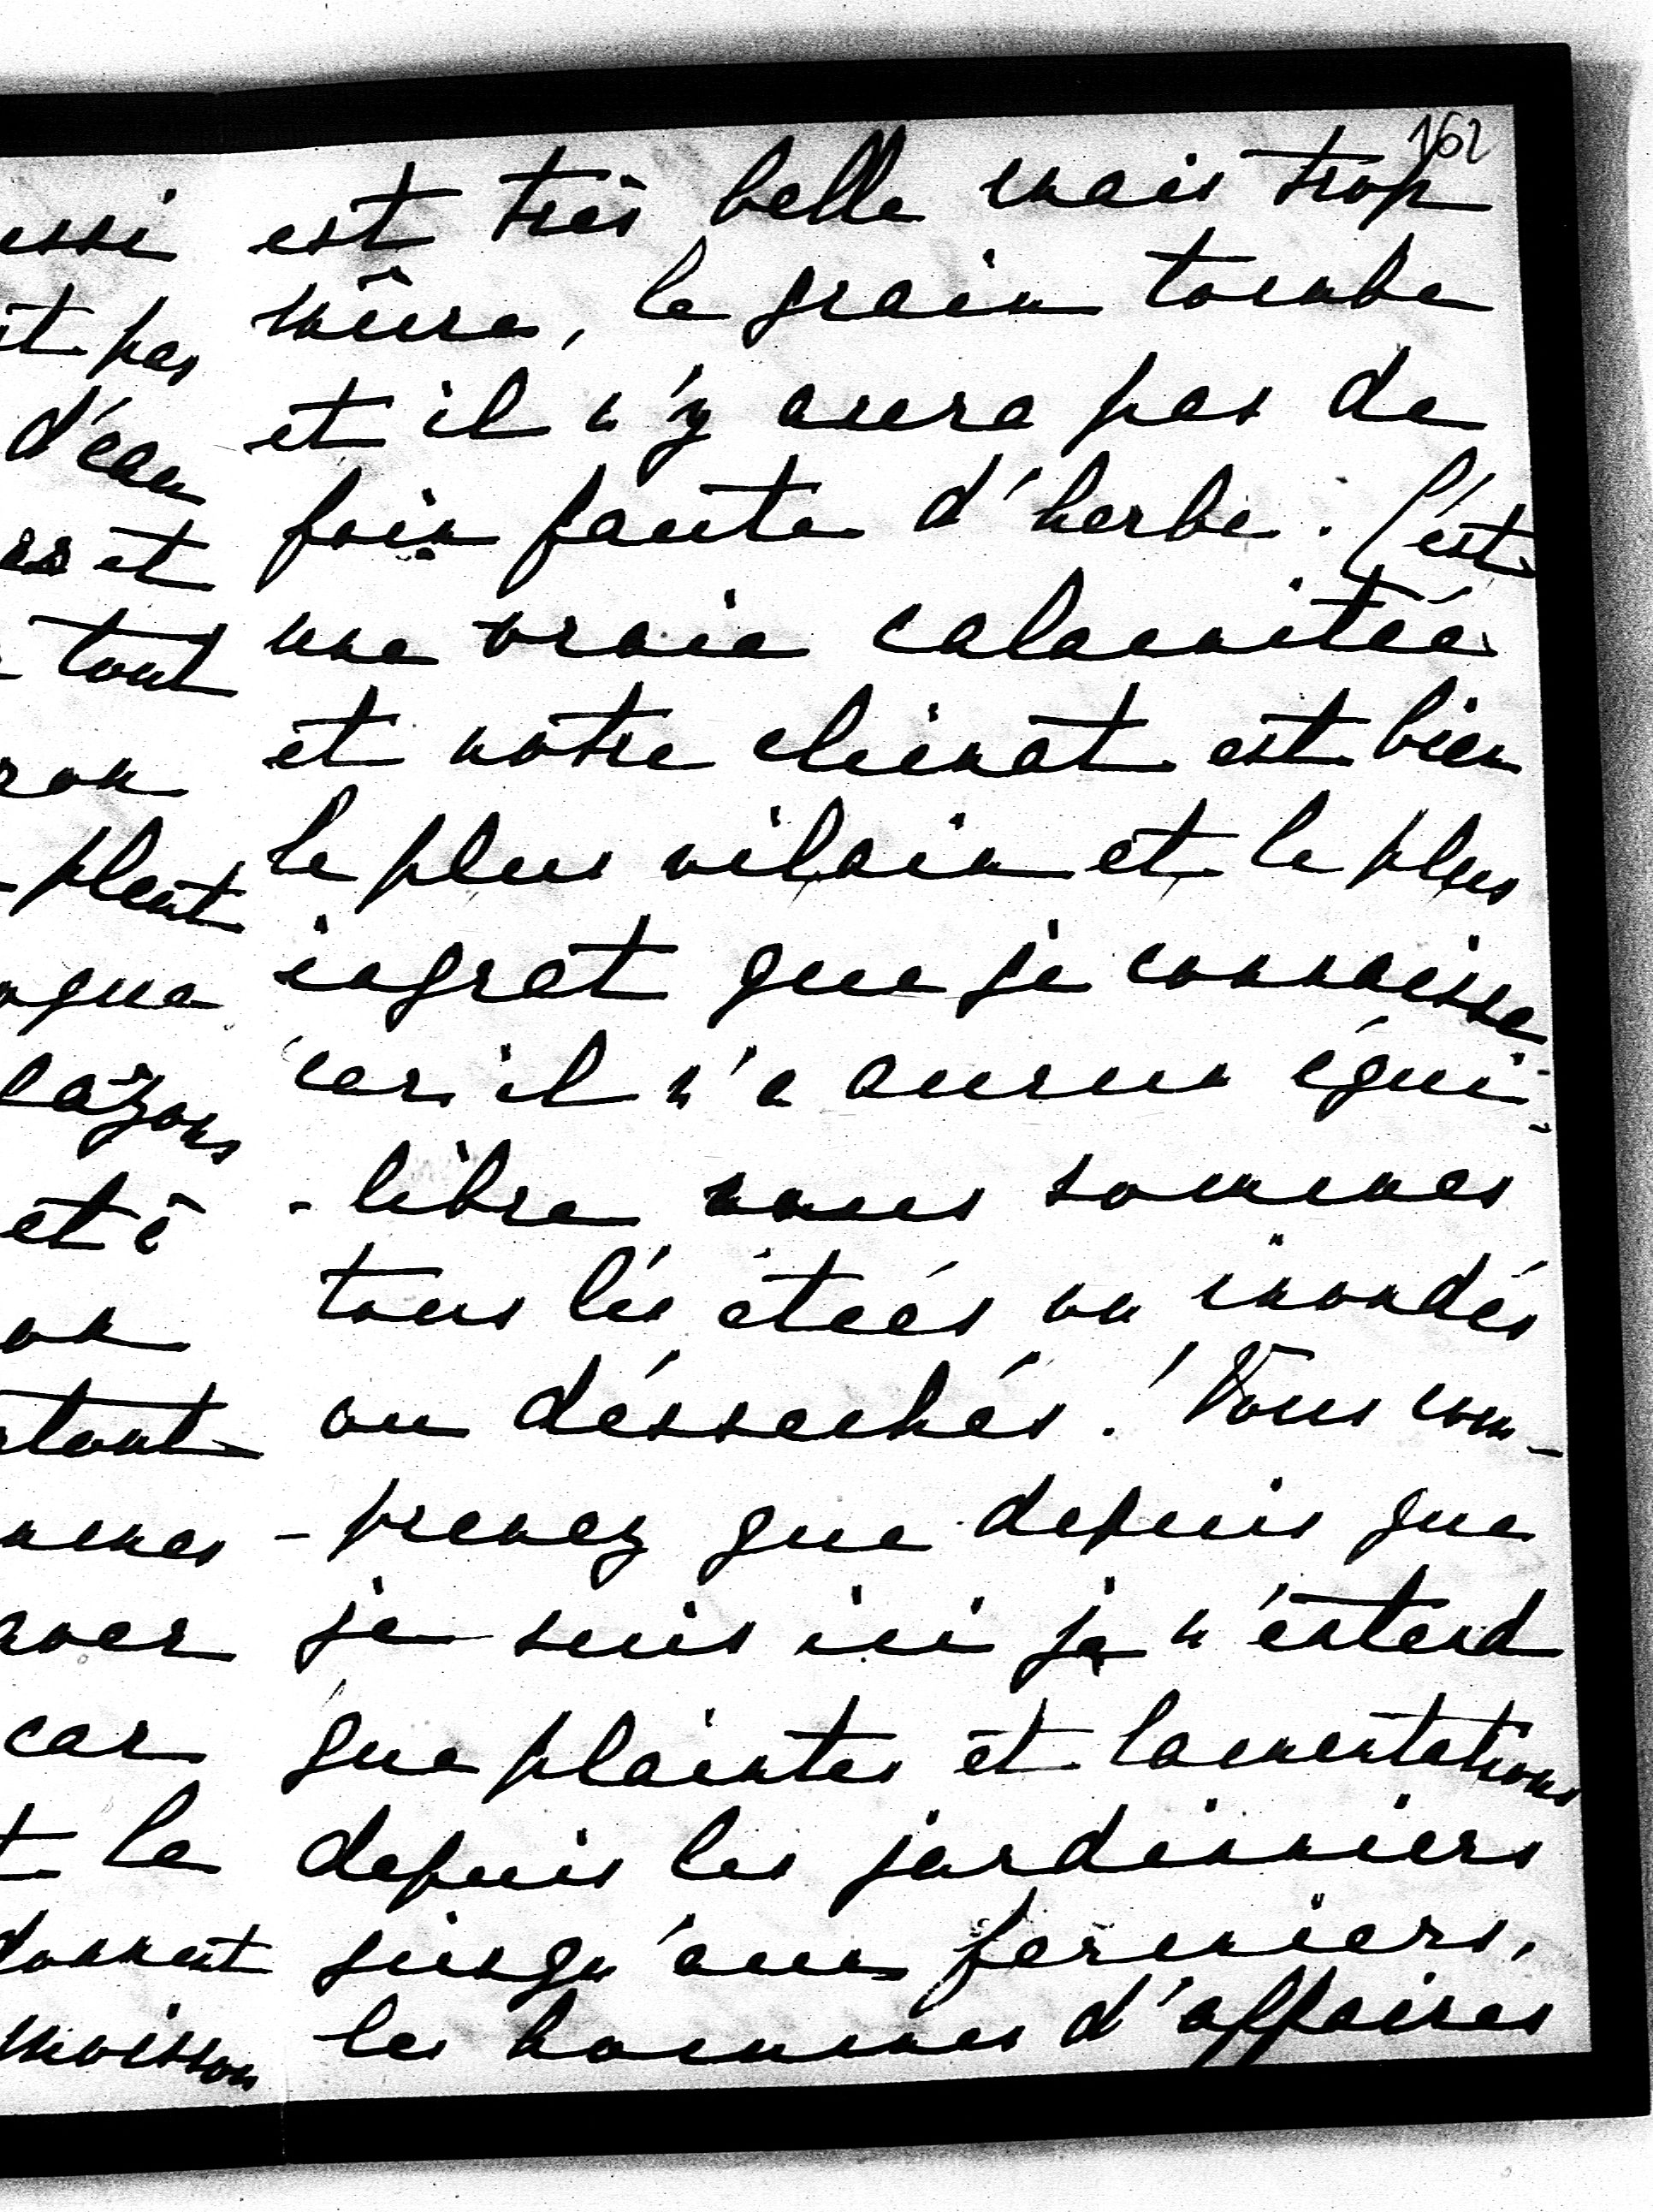 162
est très belle mais trop
mûre, le grain tombe
et il n'y aura pas de
foin faute d'herbe. C'est
une vraie calamitée
et notre climat est bien
le plus vilain et le plus
ingrat que je connaisse
car il n'a aucun équi-
-libre nous sommes
tous les étées ou inondés
ou désséchés! Vous com-
-prenez que depuis que
je suis ici je n'entend
que plaintes et lamentations
depuis les jardinniers
jusqu'aux fermiers,
les hommes d'affaires
ussi
it pas
d'eau
es et
tout
ron
pleut
ngue
gazons
et à
on
tout
mmes
aver
car
t la
donnent
moisson